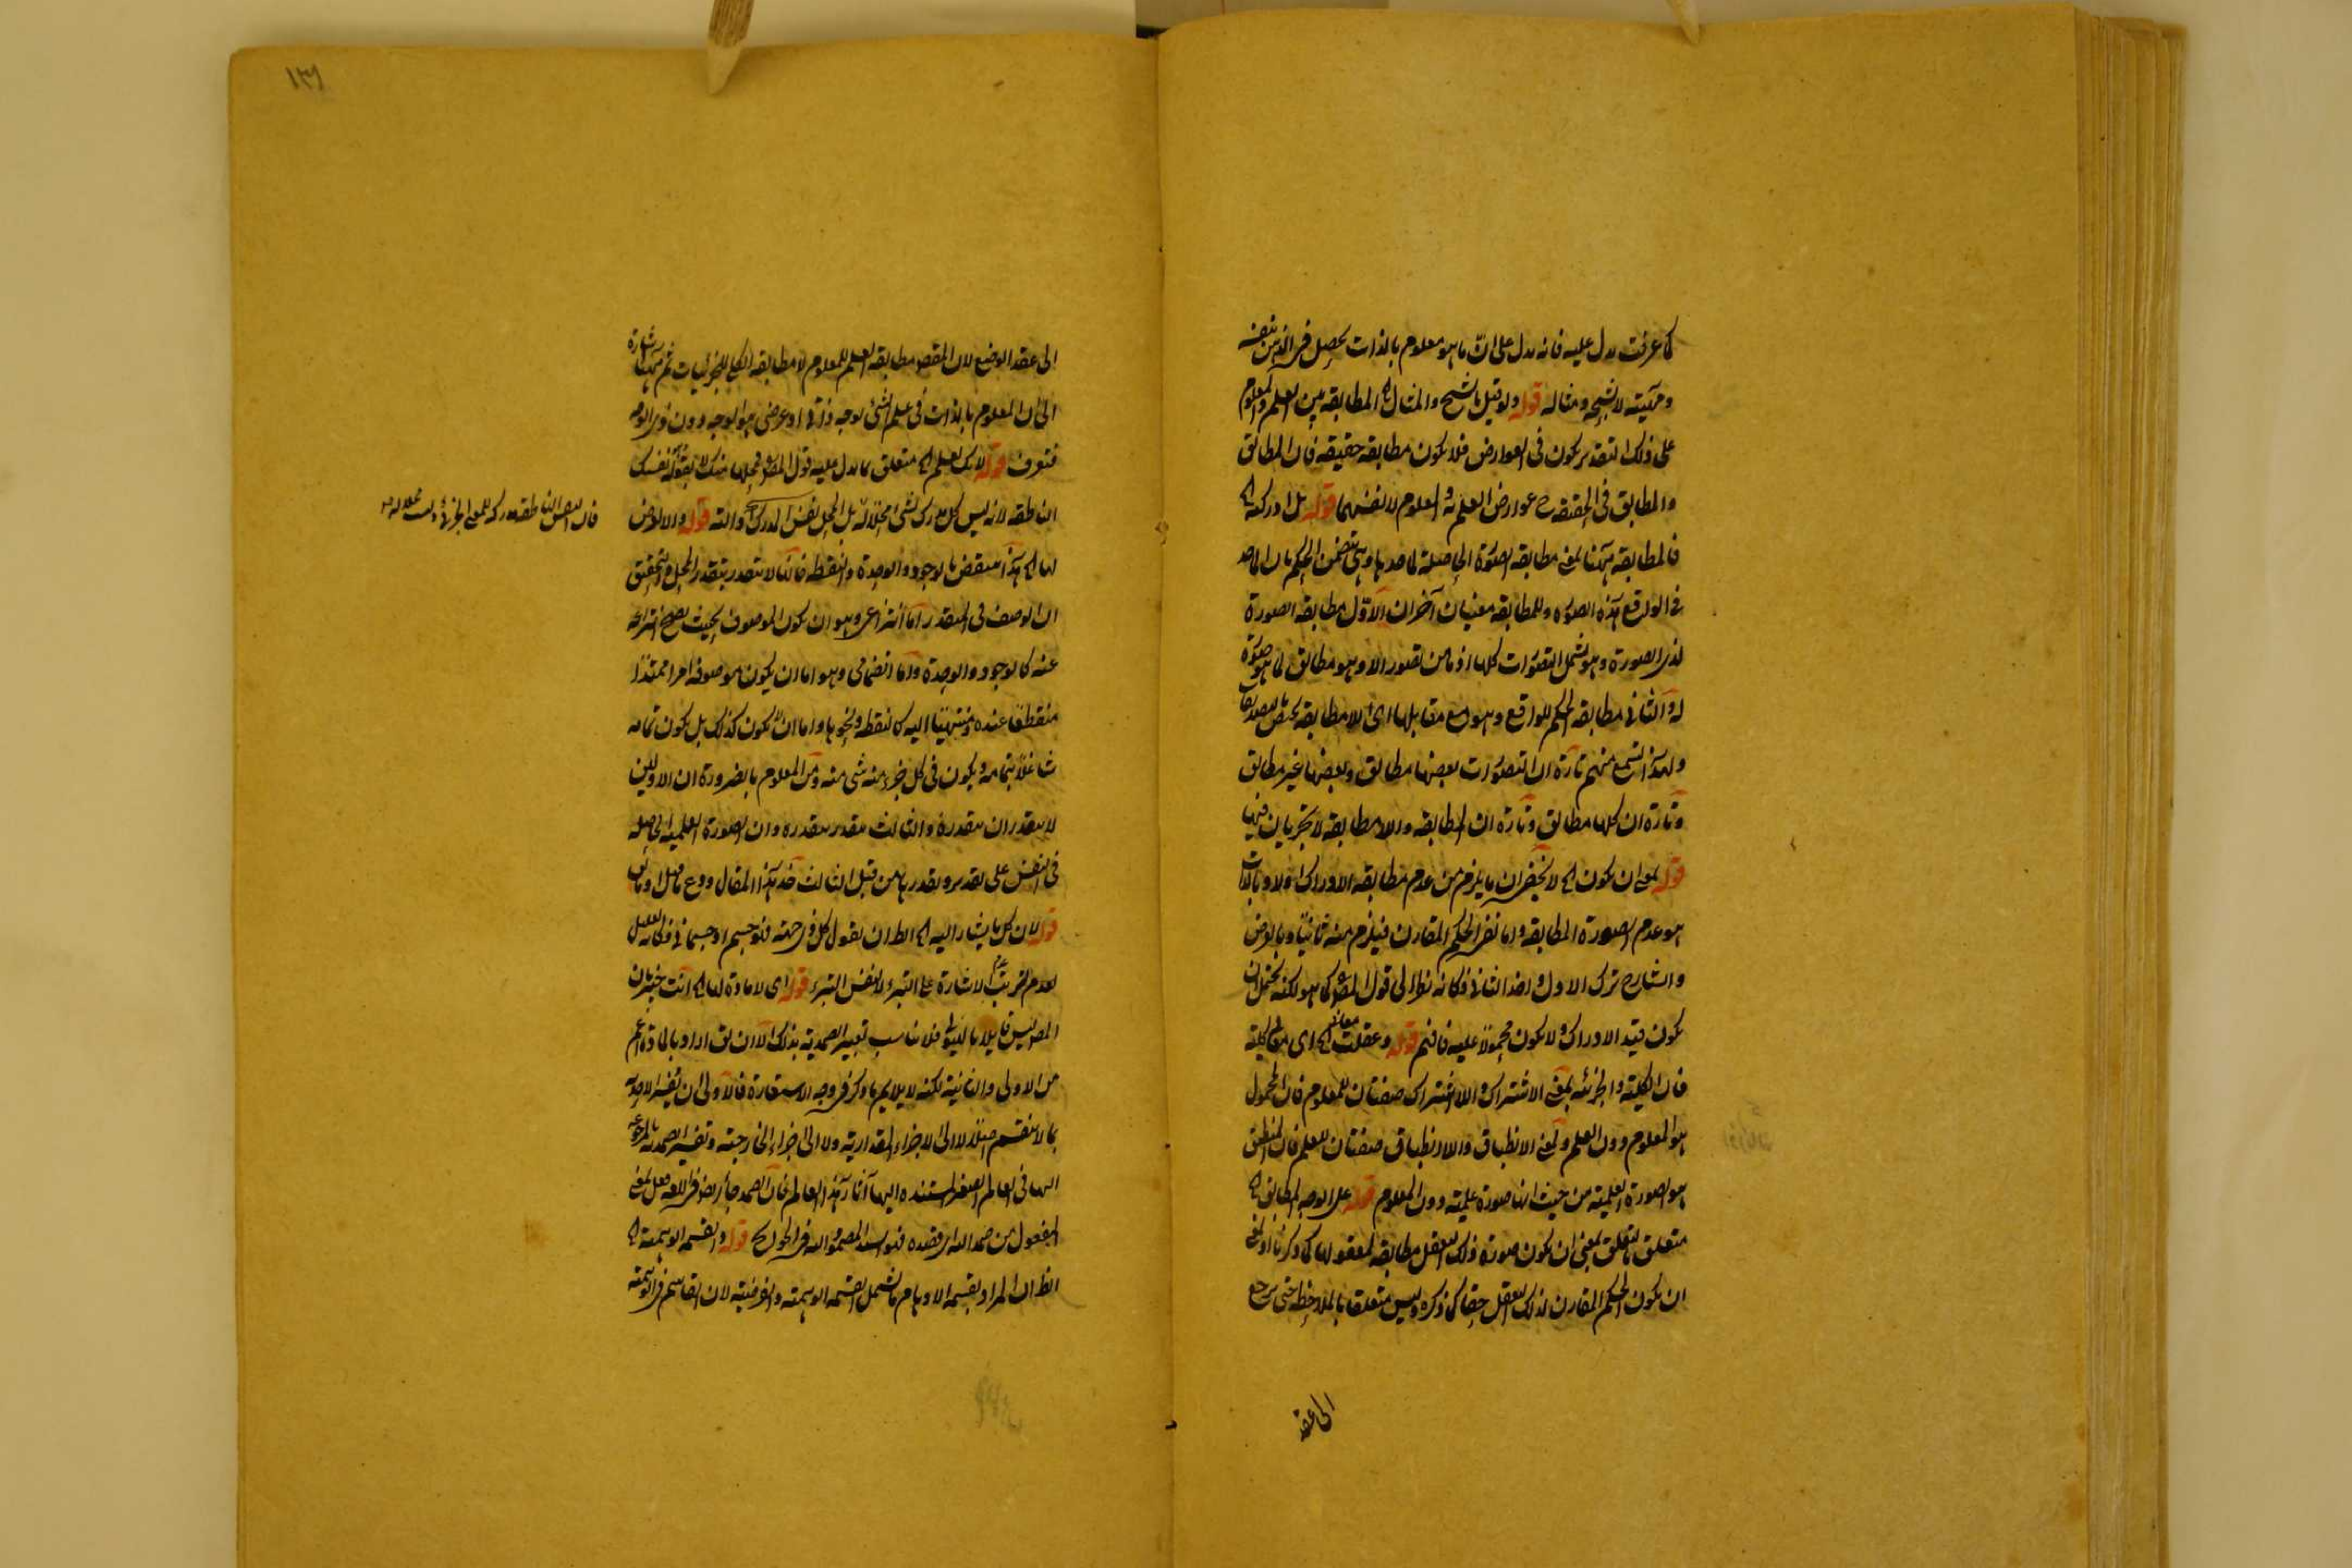 كما عرفت يدل عليه فانه يدل على ان ما هو معلوم بالذات يحصل في الذهن بنفسه
ومهيته لا بشبحه ومثاله قوله ولو قيل بالشبح والمثال الخ المطابقة بين العلم والمعلوم
على ذلك التقدير يكون في العوارض فلا يكون مطابقة حقيقة فان المطابق
والمطابق في الحقيقة ح عوارض العلم والمعلوم لا نفسهما قوله بل ادركه الخ
فالمطابقة ههنا بمعنى مطابقة الصورة الحاصلة لما صدها وهي تتضمن الحكم بان
في الواقع هذه الصورة وللمطابقة معنيان آخران الاول مطابقة الصورة
لذي الصورة وهو يشمل التصورات كلها اذ ما من تصور الا وهو مطابق لما هو صورة
له والثاني مطابقة الحكم للواقع وهو مع مقابلها اى اللامطابقة يختص بالتصديقات
ولهذا تسمع منهم تارة ان التصورات بعضها مطابق وبعضها غير مطابق
وتارة ان كلها مطابق وتارة ان المطابقة واللامطابقة لا تجريان فيها
قوله بمعنى ان يكون الخ لا يخفى ان ما يلزم من عدم مطابقة الادراك اولا وبالذات
هو عدم الصورة المطابقة واما نفى الحكم المقارن فيلزم منه ثانيا وبالعرض
والشارح ترك الاول واخذ الثاني وكانه نظرا الى قول المص كما هو لكنه يحتمل ان
يكون قيد الادراك ولا يكون محمولا عليه فافهم قوله وعقلت معانى الخ اى معانى كلية
فان الكلية والجزئية بمعنى الاشتراك واللااشتراك صفتان للمعلوم فان المحمول
هو المعلوم دون العلم وبمعنى الانطباق واللاانطباق صفتان للعلم فان المنطبق
هو الصورة العلمية من حيث انها صورة علمية دون المعلوم قوله على الوجه المطابق الخ
متعلق بالتعلق بمعنى ان يكون صورة ذلك التعقل مطابقة لمعقولها كما ذكرنا او بمعنى
ان يكون الحكم المقارن لذلك التعقل حقا كما ذكره وليس متعلقا بالملاحظة حتى يرجع
الى عقد
١٣٦
الى عقد الوضع لان المقصود مطابقة العلم للمعلوم لا مطابقة الكلي للجزئيات ثم ههنا اشارة
الى ان المعلوم بالذات في علم الشئ بوجه ذاتي او عرضي هو الوجه دون ذي الوجه
فتعرف قوله لانك تعلم الخ متعلق بما يدل عليه قول المص فمحلها منك لا بقوله نفسك
الناطقة لانه ليس كل مدرك لشئ محلا له بل المحل نفس المدرك والته قوله والا لعرض
لها الخ هذا ينتقض بالوجود والوحدة والنقطة فانها لا تتقدر بتقدر المحل والتحقيق
ان الوصف في المتقدر اما انتزاعي وهو ان يكون الموصوف بحيث يصح انتزاعه
عنه كالوجود والوحدة واما انضمامي وهو اما ان يكون موصوفه امرا ممتدا
منقطعا عنده ومنتهيا اليه كالنقطة ونحوها واما ان لا يكون كذلك بل يكون تمامه
شاغلا بتمامه ويكون في كل جزء منه شئ منه ومن المعلوم بالضرورة ان الاولين
لا يتقدران بتقدره والثالث يتقدر بتقدره وان الصورة العلمية الحاصلة
في النفس على تقدير وتقدرها من قبيل الثالث خذ هذا المقال ودع ما قيل او يقال
قوله لان كل ما يشار اليه الخ الظ ان يقول كل ذي جهة فهو جسم او جسماني وكانه للتعليل
لعدم ترتب الاشارة على التبرء لا نفس التبرء قوله اى لا مادة لها الخ انت خبير بان
المص ليس قايلا بالهيولى فلا يناسب تعبير الصمدية بذلك الا ان يق اراد بالمادة اعم
من الاولى والثانية لكنه لا يلايم ما ذكر في وجه الاستعارة فالاولى ان يفسر الاحدية
بما لا ينقسم اصلا لا الى الاجزاء المقدارية ولا الى اجزاء الخارجية وتفسير الصمدية بالمرجوعة
اليها في العالم الصغير المستنده اليها آثار هذا العالم فان الصمد جاء ايضا في اللغة فعل بمعنى
المفعول من صمد اليه اى قصده فهو السيد المصمود اليه في الحوائج قوله والقسمة الوهمية الخ
الظ ان المراد بقسمة الاوهام ما يشمل القسمة الوهمية والفرضية لان القاسم في الوهمية
فان النفس الناطقة مدركة للمعنى الجزئي وليست محلا له منه